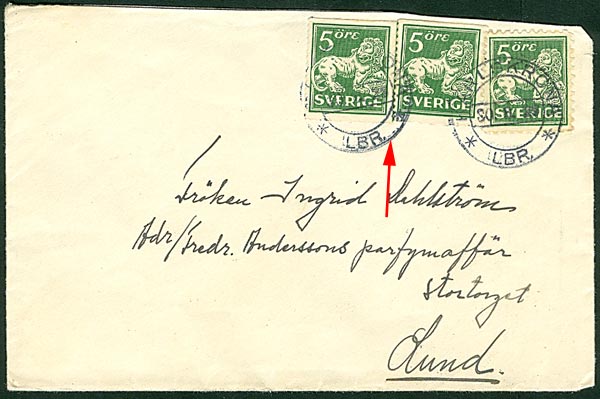 5 ÖRE 5 ÖRE 5 ÖRE
SVERIGE SVERIGE SVERIGE
LBR. LBR.
Fröken Ingrid Dehlström
Adr/Fredr. Anderssons parfymaffär
Stortorget
Lund.